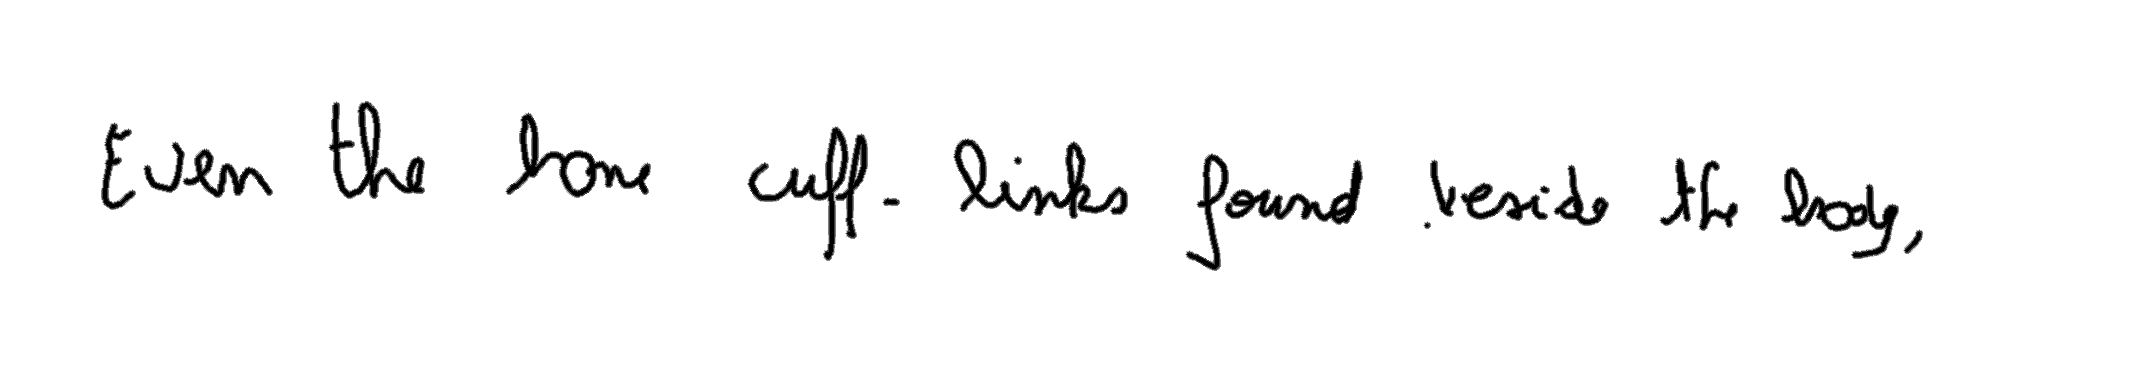 Even the bone cuff-links found beside the body,